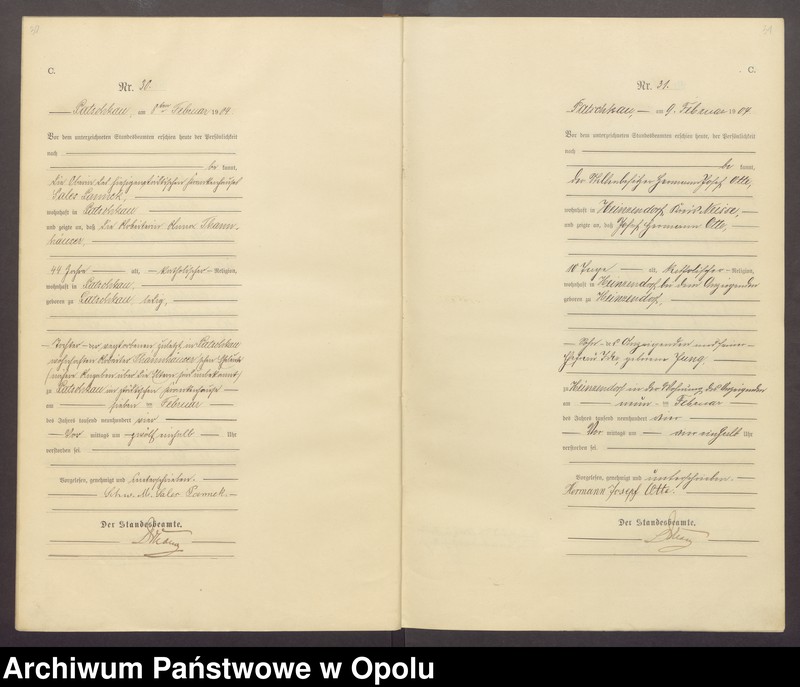 40
C.
Nr. 30.
Patschkau, am 8ten Februar 1904
Vor dem unterzeichneten Standesbeamten erschien heute, der Persönlichkeit
nach
be kannt,
die Oberin des hiesigen städtischen Krankenhauses
Sales
wohnhaft in Patschkau
und zeigte an, daß die Arbeiterin Anna Thann-
häuser,
44 Jahre alt, katholischer Religion,
wohnhaft in Patschkau,
geboren zu Patschkau, ledig,
Tochter der verstorbenen zuletzt in Patschkau
wohnhaften Arbeiter Thannhäuser'schen Eheleute
(nähere Angaben über die Eltern sind unbekannt)
zu Patschkau im städtischen Krankenhause
am sieben ten Februar
des Jahres tausend neunhundert vier
Vor mittags um zwölf einhalb Uhr
verstorben sei.
Vorgelesen, genehmigt und unterschrieben.
Schw. M. Sales
Der Standesbeamte.
41
C.
Nr. 31.
Patschkau, am 9. Februar 1904
Vor dem unterzeichneten Standesbeamten erschien heute, der Persönlichkeit
nach
be kannt,
der Stellenbesitzer Hermann Josef Otte,
wohnhaft in Heinzendorf, Kreis Neisse,
und zeigte an, daß Josef Hermann Otte,
10 Tage alt, katholischer Religion,
wohnhaft in Heinzendorf bei dem Anzeigenden
geboren zu Heinzendorf,
Sohn des Anzeigenden und seiner
Ehefrau Ida, geborene Jung
zu Heinzendorf in der Wohnung des Anzeigenden
am neun ten Februar
des Jahres tausend neunhundert vier
Vor mittags um vier einhalb Uhr
verstorben sei.
Vorgelesen, genehmigt und unterschrieben.
Hermann Josepf Otte.
Der Standesbeamte.
Archiwum Państwowe w Opolu